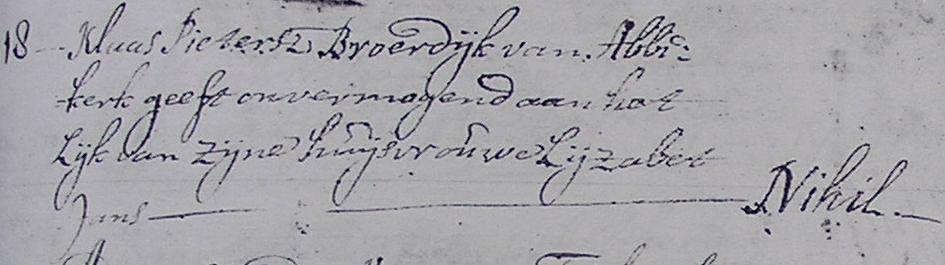 18 - Klaas Pietersz Broerdijk van Abbe:
kerk geeft onvermogend aan het
Lijk van zijne huijsvrouwe Lijzabet
Jans — — Nihil.